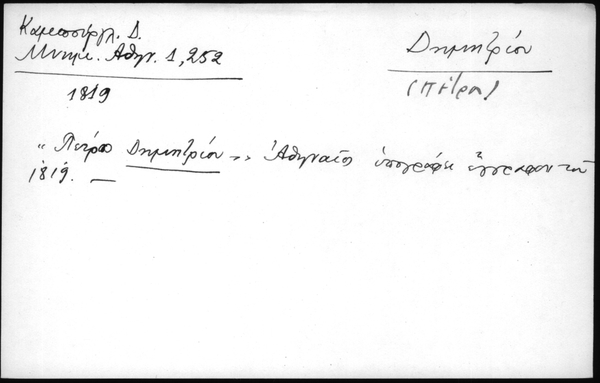 Καμπούρογλ. Δ.
Μνημ. Αθην. 1, 252
1819
Δημητρίου
(Πέτρος)
"Πέτρος Δημητρίου" Ἀθηναῖος ὑπογράφει ἔγγραφον τοῦ
1819. —